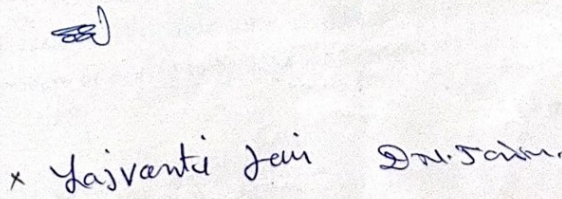 x Lajvanti Jain D.N. Jain.